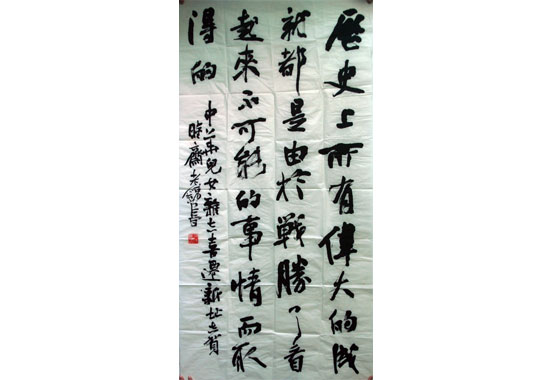 歷史上所有偉大的成
就都是由於戰勝了看
起來不可能的事情而取
得的
中華兒女雜志喜遷新址志賀